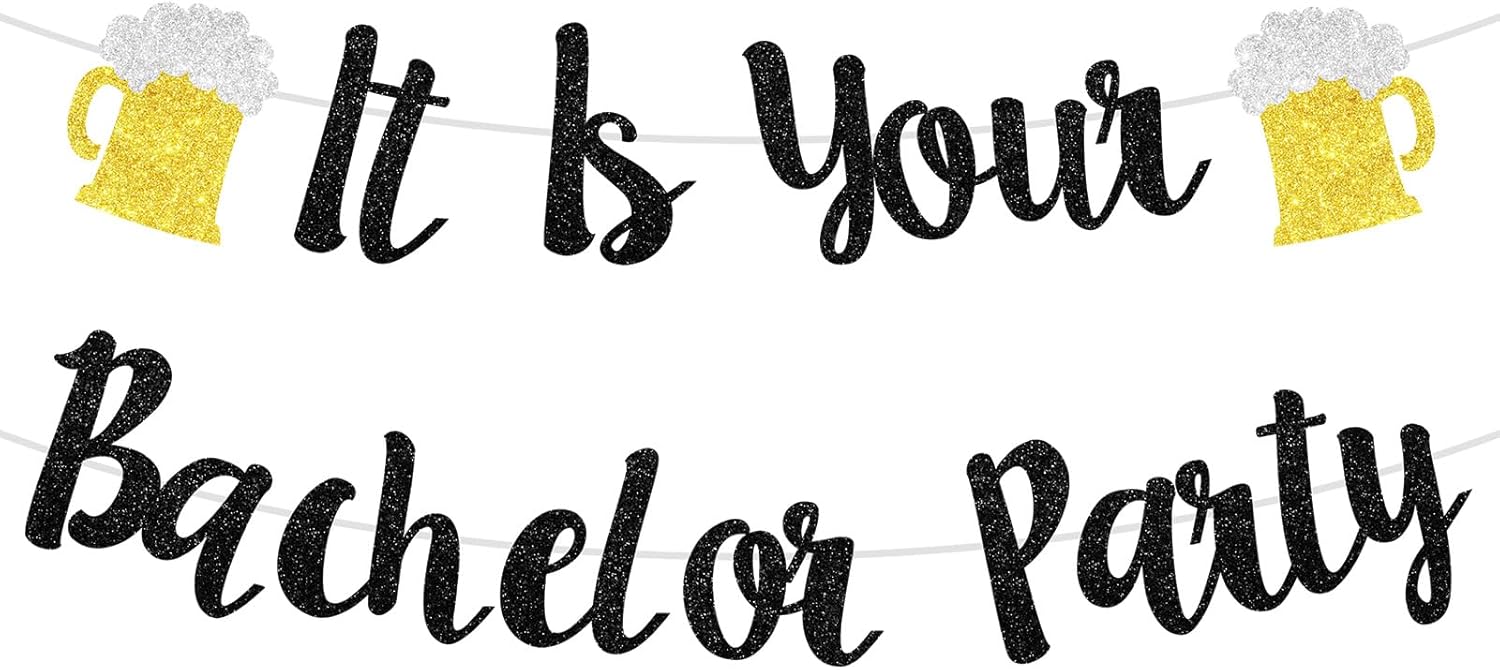 It Is Your
Bachelor Party